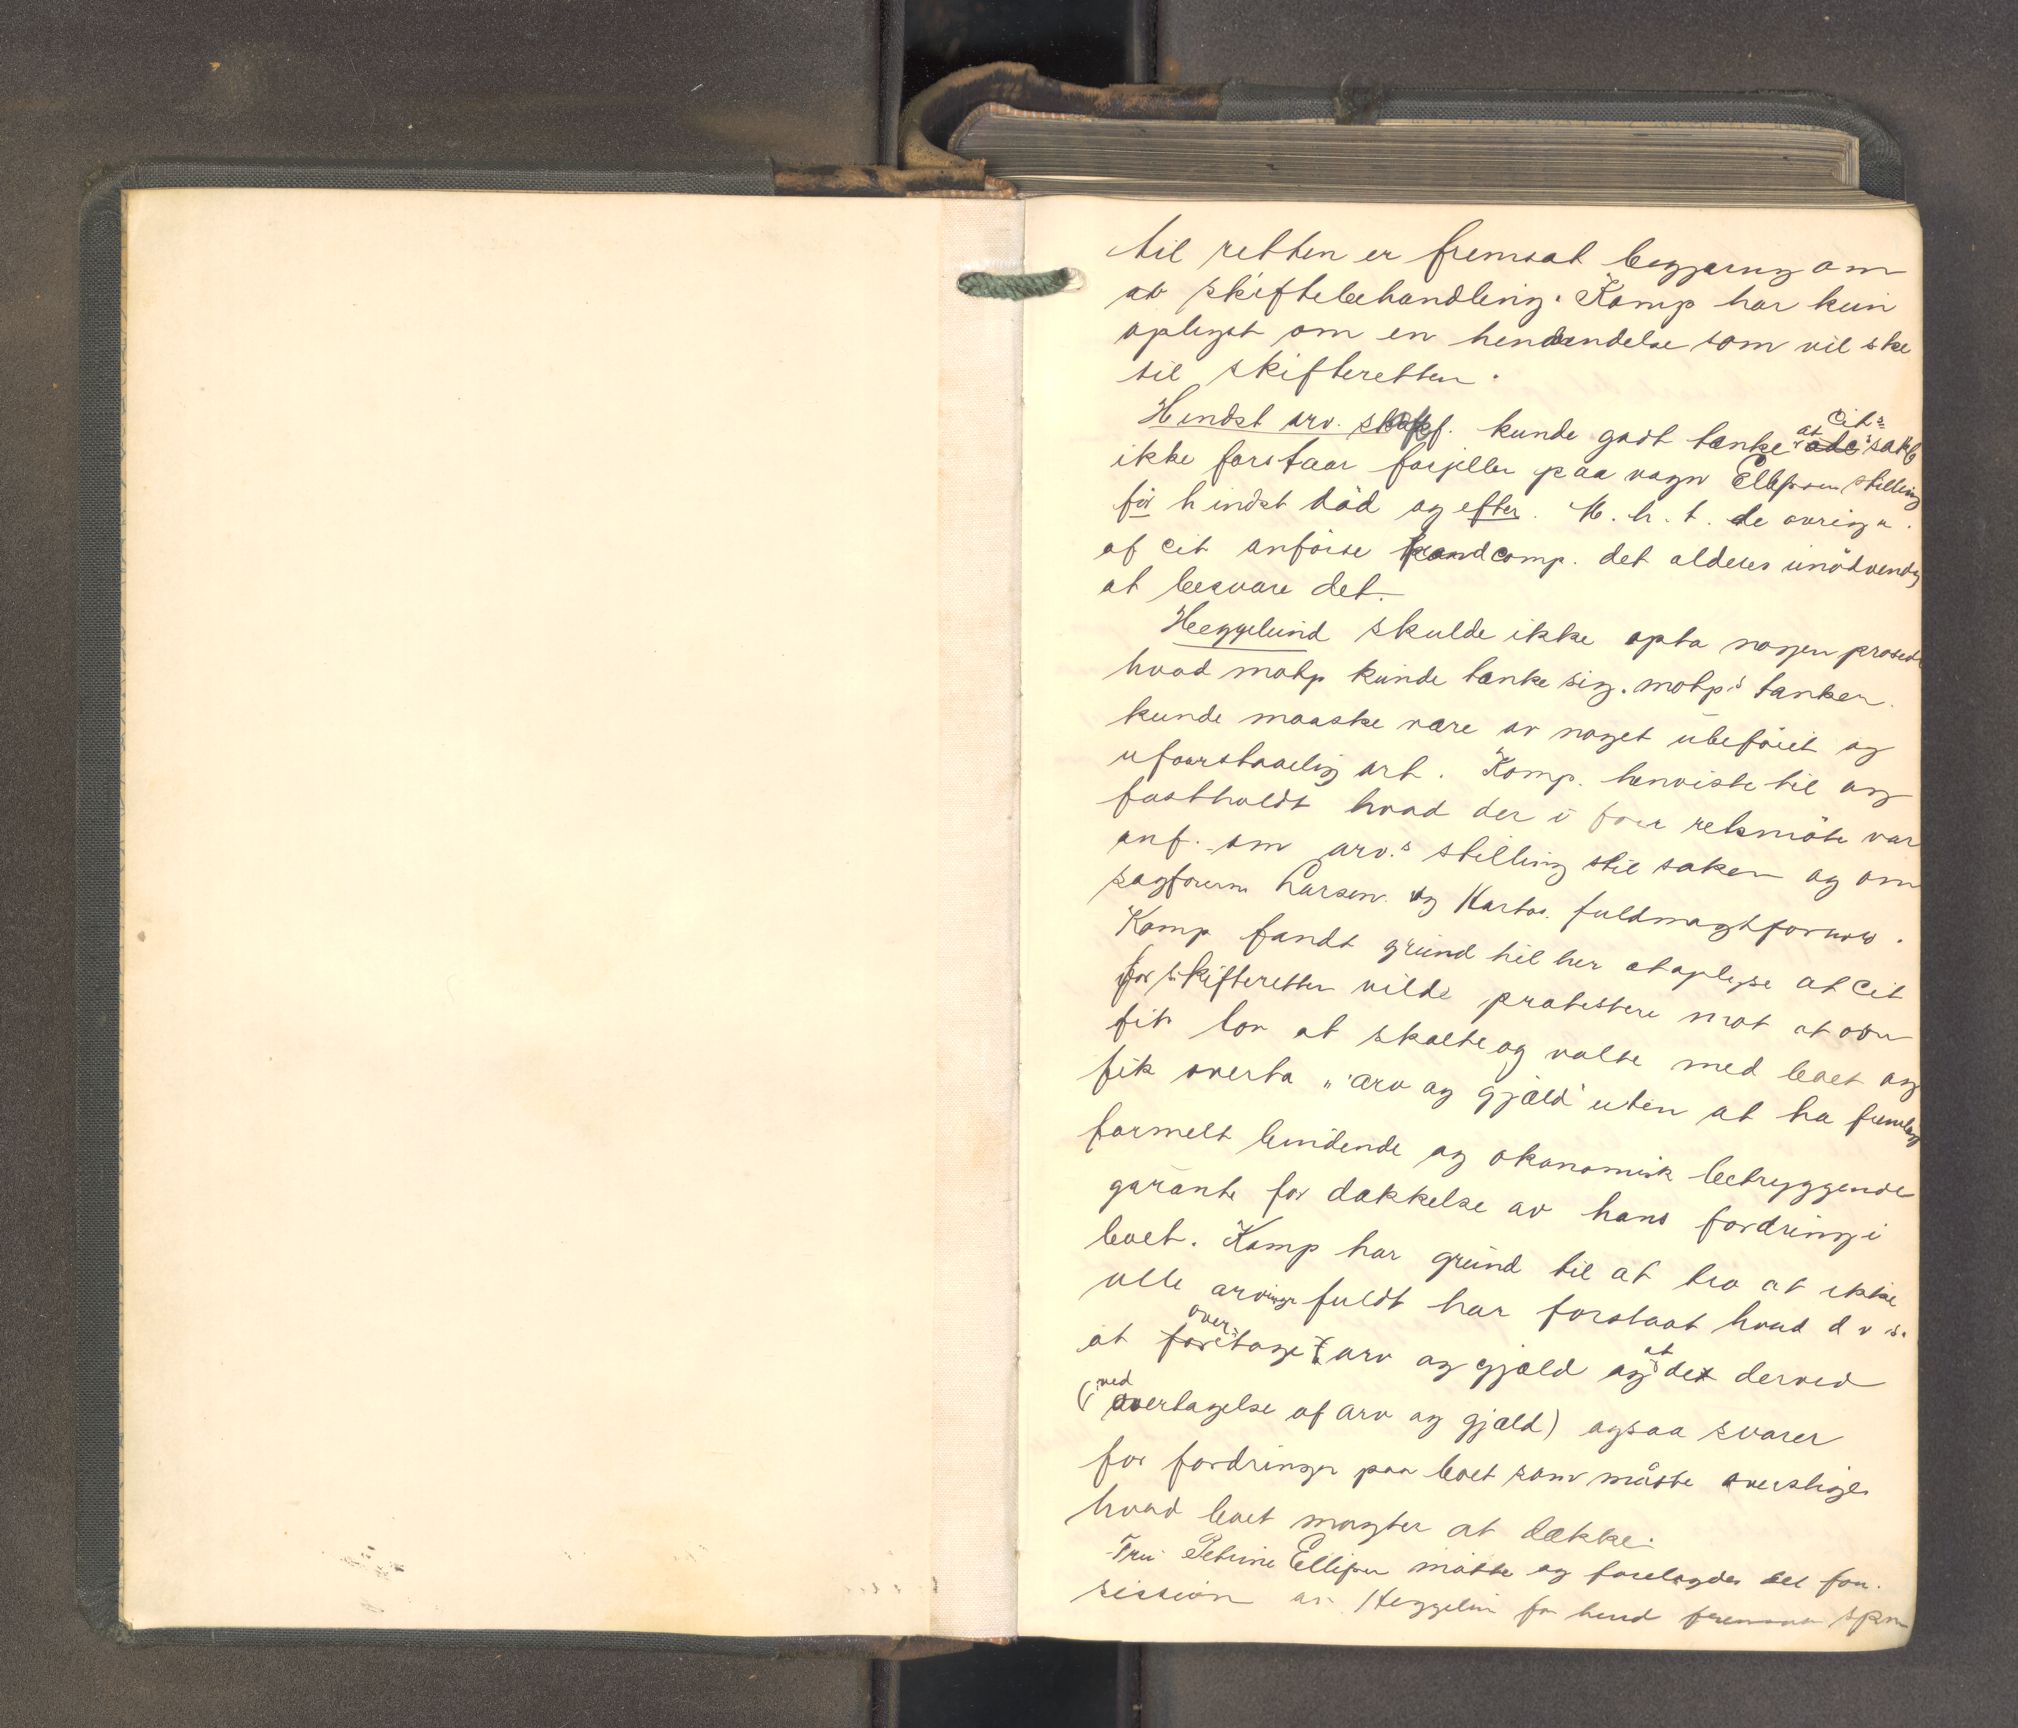 til retten er fremsat begjæring om
at skiftebehandling. Komp har kun
oplyst om en henvendelse som vil ske
til skifteretten.
Hindst arv. sakf. kunde godt tænke at cit.s sakf
ikke forstaar forskjellen paa vagn Ellefsens stilling
før hindst död og efter. M. h. t. de øvrige
af cit anførte fandt comp. det aldeles unödvendig
at besvare det.
Heggelund skulde ikke opta nogen prosed
hvad motp kunde tænke sig. motp.s tanker
kunde maaske være av noget ubeføiet og
uforstaaelig art. Komp. henviste til og
fastholdt hvad der i forr retsmöte var
anf. om arv.s stilling til saken og om
sagförer Larsen og fuldmagtforhold.
Komp fandt grund til her at oplyse at cit
for skifteretten vilde protestere mot at arv
fik lov at skalte og valte med boet og
fik overta "arv og gjæld" uten at ha fremlagt
formelt bindende og økonomisk betryggende
garanti for dækkelse av hans fordring i
boet. Komp har grund til at tro at ikke
alle arvinge fuldt har forstaat hvad d v s.
at overtage arv og gjæld og at de derved
(ved overtagelse af arv og gjæld) ogsaa svarer
for fordringer paa boet som maatte overstige
hvad boet magter at dække.
Fru Petrine Ellefsen mötte og forelagdes det forr.
session av Heggelun for hend fremsa spm